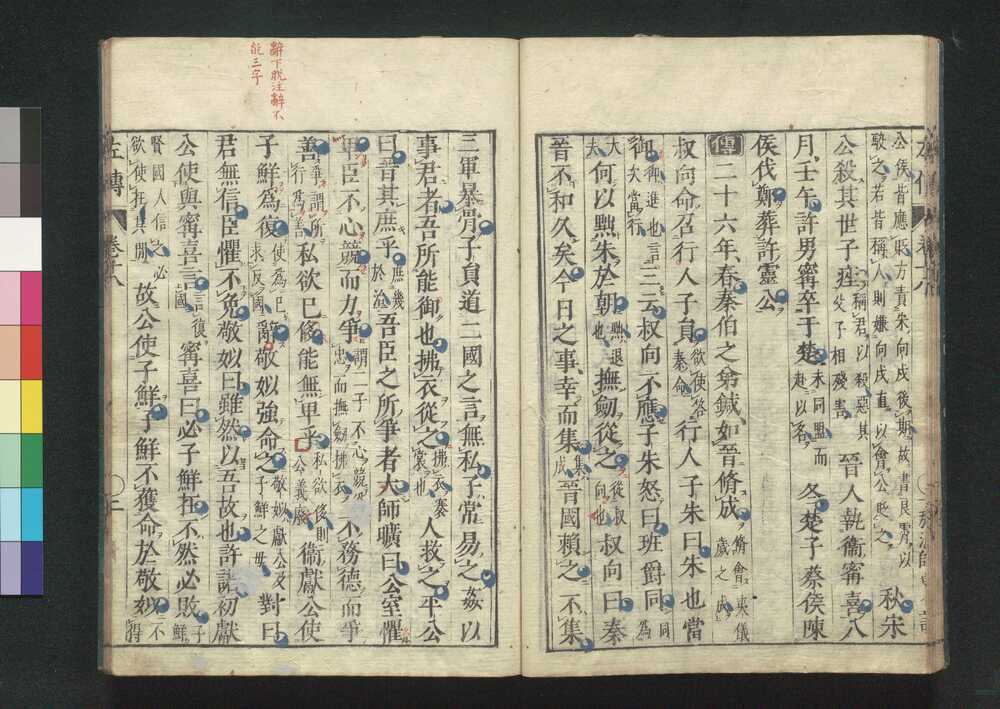 公侯皆應貶方責朱向戌後期故書良霄以
駮之若皆稱人則嫌向戌直以會公貶之 秋宋
公殺其世子痤 稱君以殺惡其父子相殘害 晉人執衞甯喜八
月壬午許男甯卒于楚 未同盟而赴以名 冬楚子蔡侯陳
侯伐鄭葬許靈公
傳二十六年春秦伯之弟鍼如晉脩成 脩會夷儀歲之成
叔向命召行人子員 欲使答秦命 行人子朱曰朱也當
御 御進也言次當行 三云叔向不應子朱怒曰班爵同 同為大夫
何以黜朱於朝 黜退也 撫劒從之 從叔向也 叔向曰秦
晉不和久矣今日之事幸而集 集成 晉國賴之不集
三軍暴骨子員道二國之言無私子常易之姦以
事君者吾所能御也拂衣從之 拂衣褰裳也 人救之平公
曰晉其庶乎 庶幾於治 吾臣之所爭者大師曠曰公室懼
卑臣不心競而力爭 謂二子不心競為忠而撫劒拂衣 不務德而爭
善 爭謂所行為善 私欲已侈能無卑乎 私欲侈則公義廢 衞獻公使
子鮮為復 使為已求反國 辭敬姒強命之 敬姒獻公及子鮮之母 對曰
君無信臣懼不免敬姒曰雖然以吾故也許諾初獻
公使與甯喜言 言復國 甯喜曰必子鮮在不然必敗 子鮮
賢國人信之必欲使在其間 故公使子鮮子鮮不獲命於敬姒 不得
左傳 卷十八
辭下脫注辭不
能三字